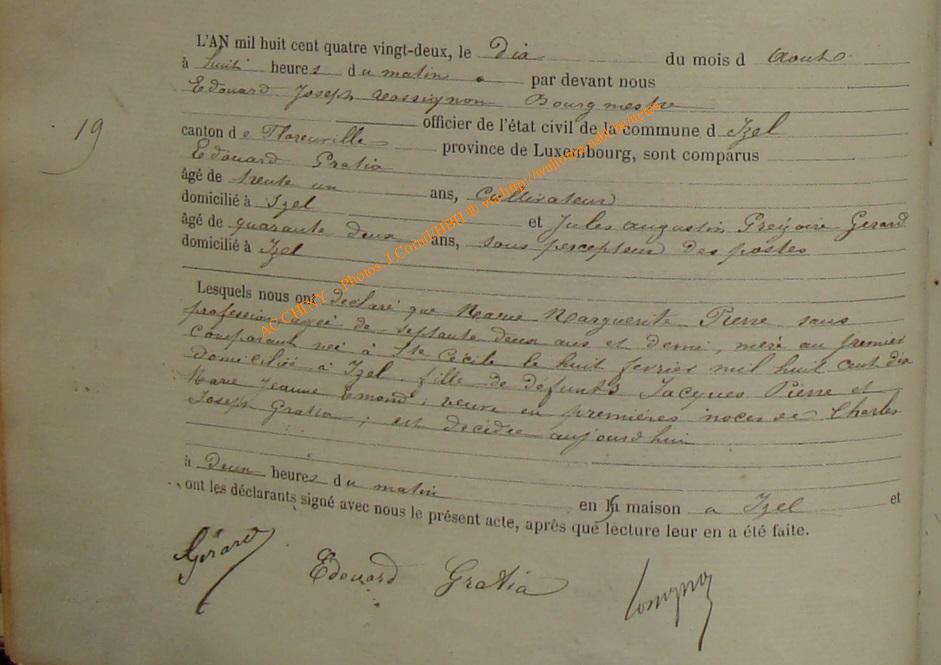 L'AN mil huit cent quatre vingt-deux, le dix du mois d Août
à huit heures du matin par devant nous
Edouard Joseph Rossignon Bourgmestre
officier de l'état civil de la commune d Izel
19
canton de Florenville province de Luxembourg, sont comparus
Edouard Gratia
âgé de trente un ans, Cultivateur
domicilié à Izel et Jules Augustin Grégoire Gerard
âgé de quarante deux ans, sous percepteur des postes
domicilié à Izel
Lesquels nous ont déclaré que Marie Marguerite Pierre sans
profession agée de septante deux ans et demi, mère au premier
comparant née à Ste Cécile le huit fevrier mil huit cent dix
domiciliée à Izel, fille de defunts Jacques Pierre et
Marie Jeanne Emond; veuve en premières noces de Charles
Joseph Gratia; est décédée aujourd'hui
à deux heures du matin en sa maison a Izel et
ont les déclarants signé avec nous le présent acte, après que lecture leur en a été faite.
Gérard Edouard Gratia Rossignon